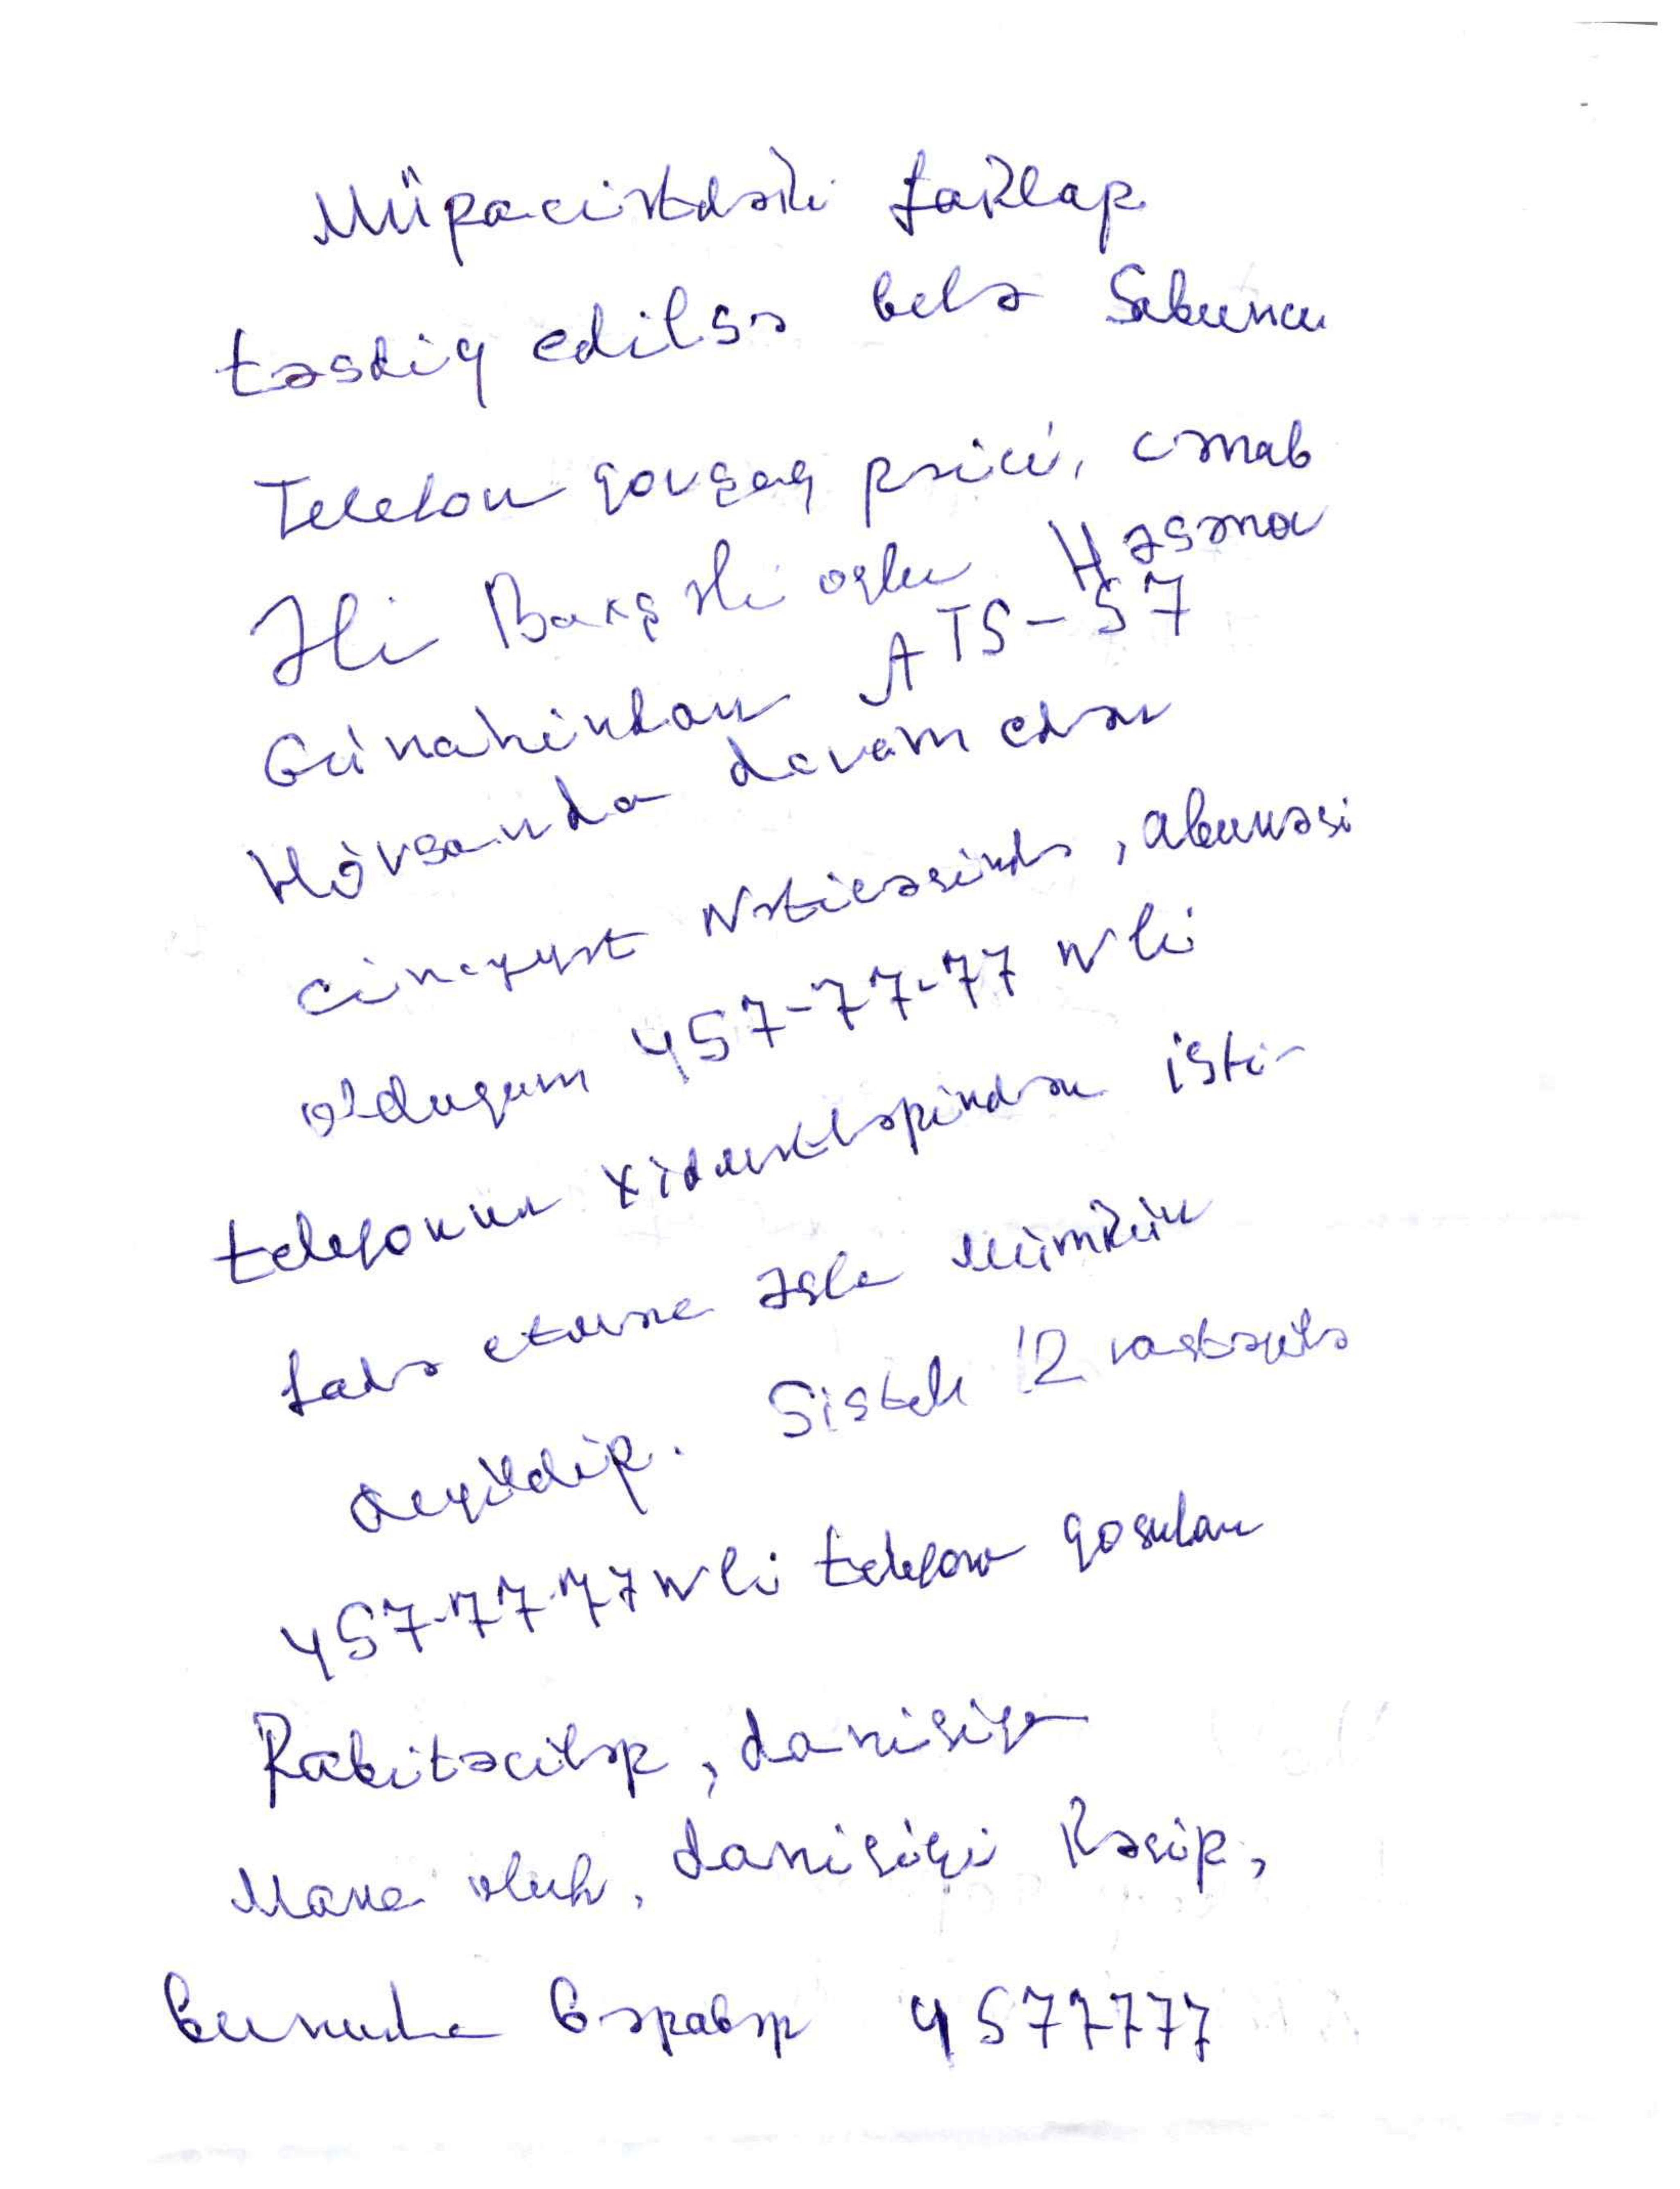 Müraciətdəki faktlar
təsdiq edilsə belə Sabunçu
Telefon qovşaq rəisi, cənab
Əli Baxşəli oğlu Həsənov
Günahından ATS-57
Hövsanda davam edən
cinayət Nəticəsində, abunəsi
olduğum 457-77-77 N li
telefonun xidmətlərindən isti-
fadə etmək əsla mümkün
deyildir. Sistem 12 vasitəsilə
457-77-77 N li telefona qoşulan
Rabitəcilər, danışığa
Mane olub, danışığı kəsir,
bununla bərabər 4577777